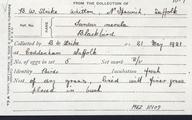 FROM THE COLLECTION OF
B. W. Tooke Whitton Nr Ipswich Suffolk
Turdus merula
Blackbird
Collected by B. W. Tooke on 21 May 1921
at Coddenham Suffolk
No. of eggs in set 5 Set mark
Identity Birds Incubation fresh
Nest of dry grass, lined with fine grass
placed in bush